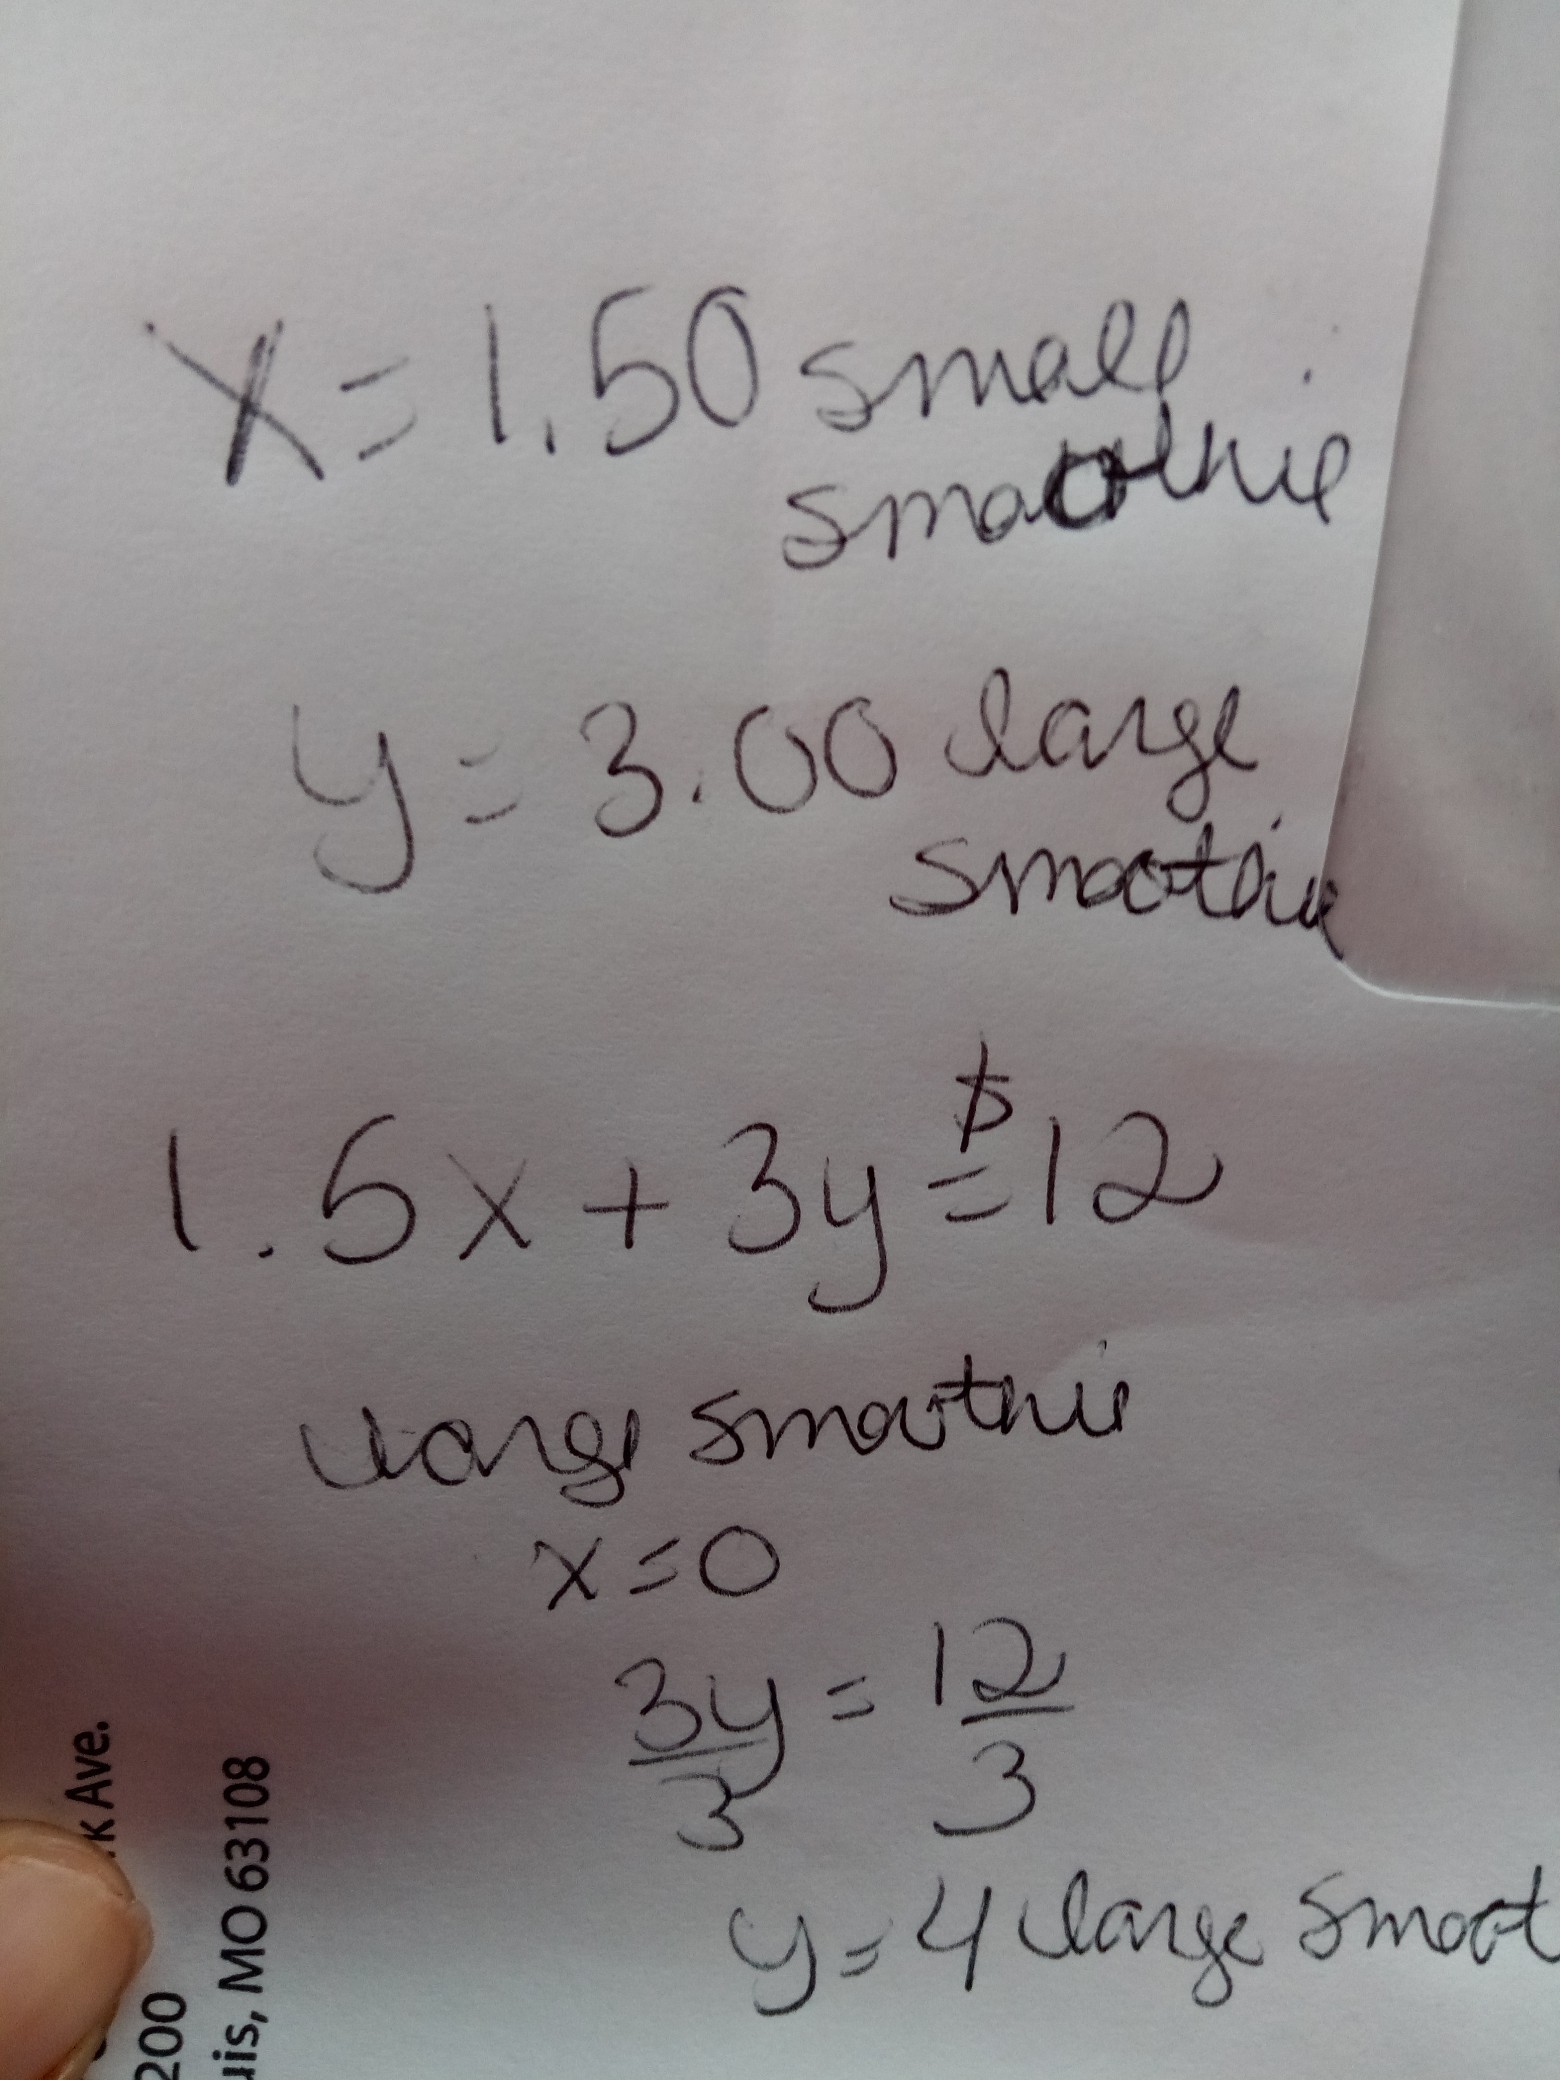 x = 1.50 small
smoothie
y = 3.00 large
smoothie
$
1.5x + 3y = 12
large smoothie
x = 0
3y = 12
3 3
y = 4 large smoot
k Ave.
200
uis, MO 63108